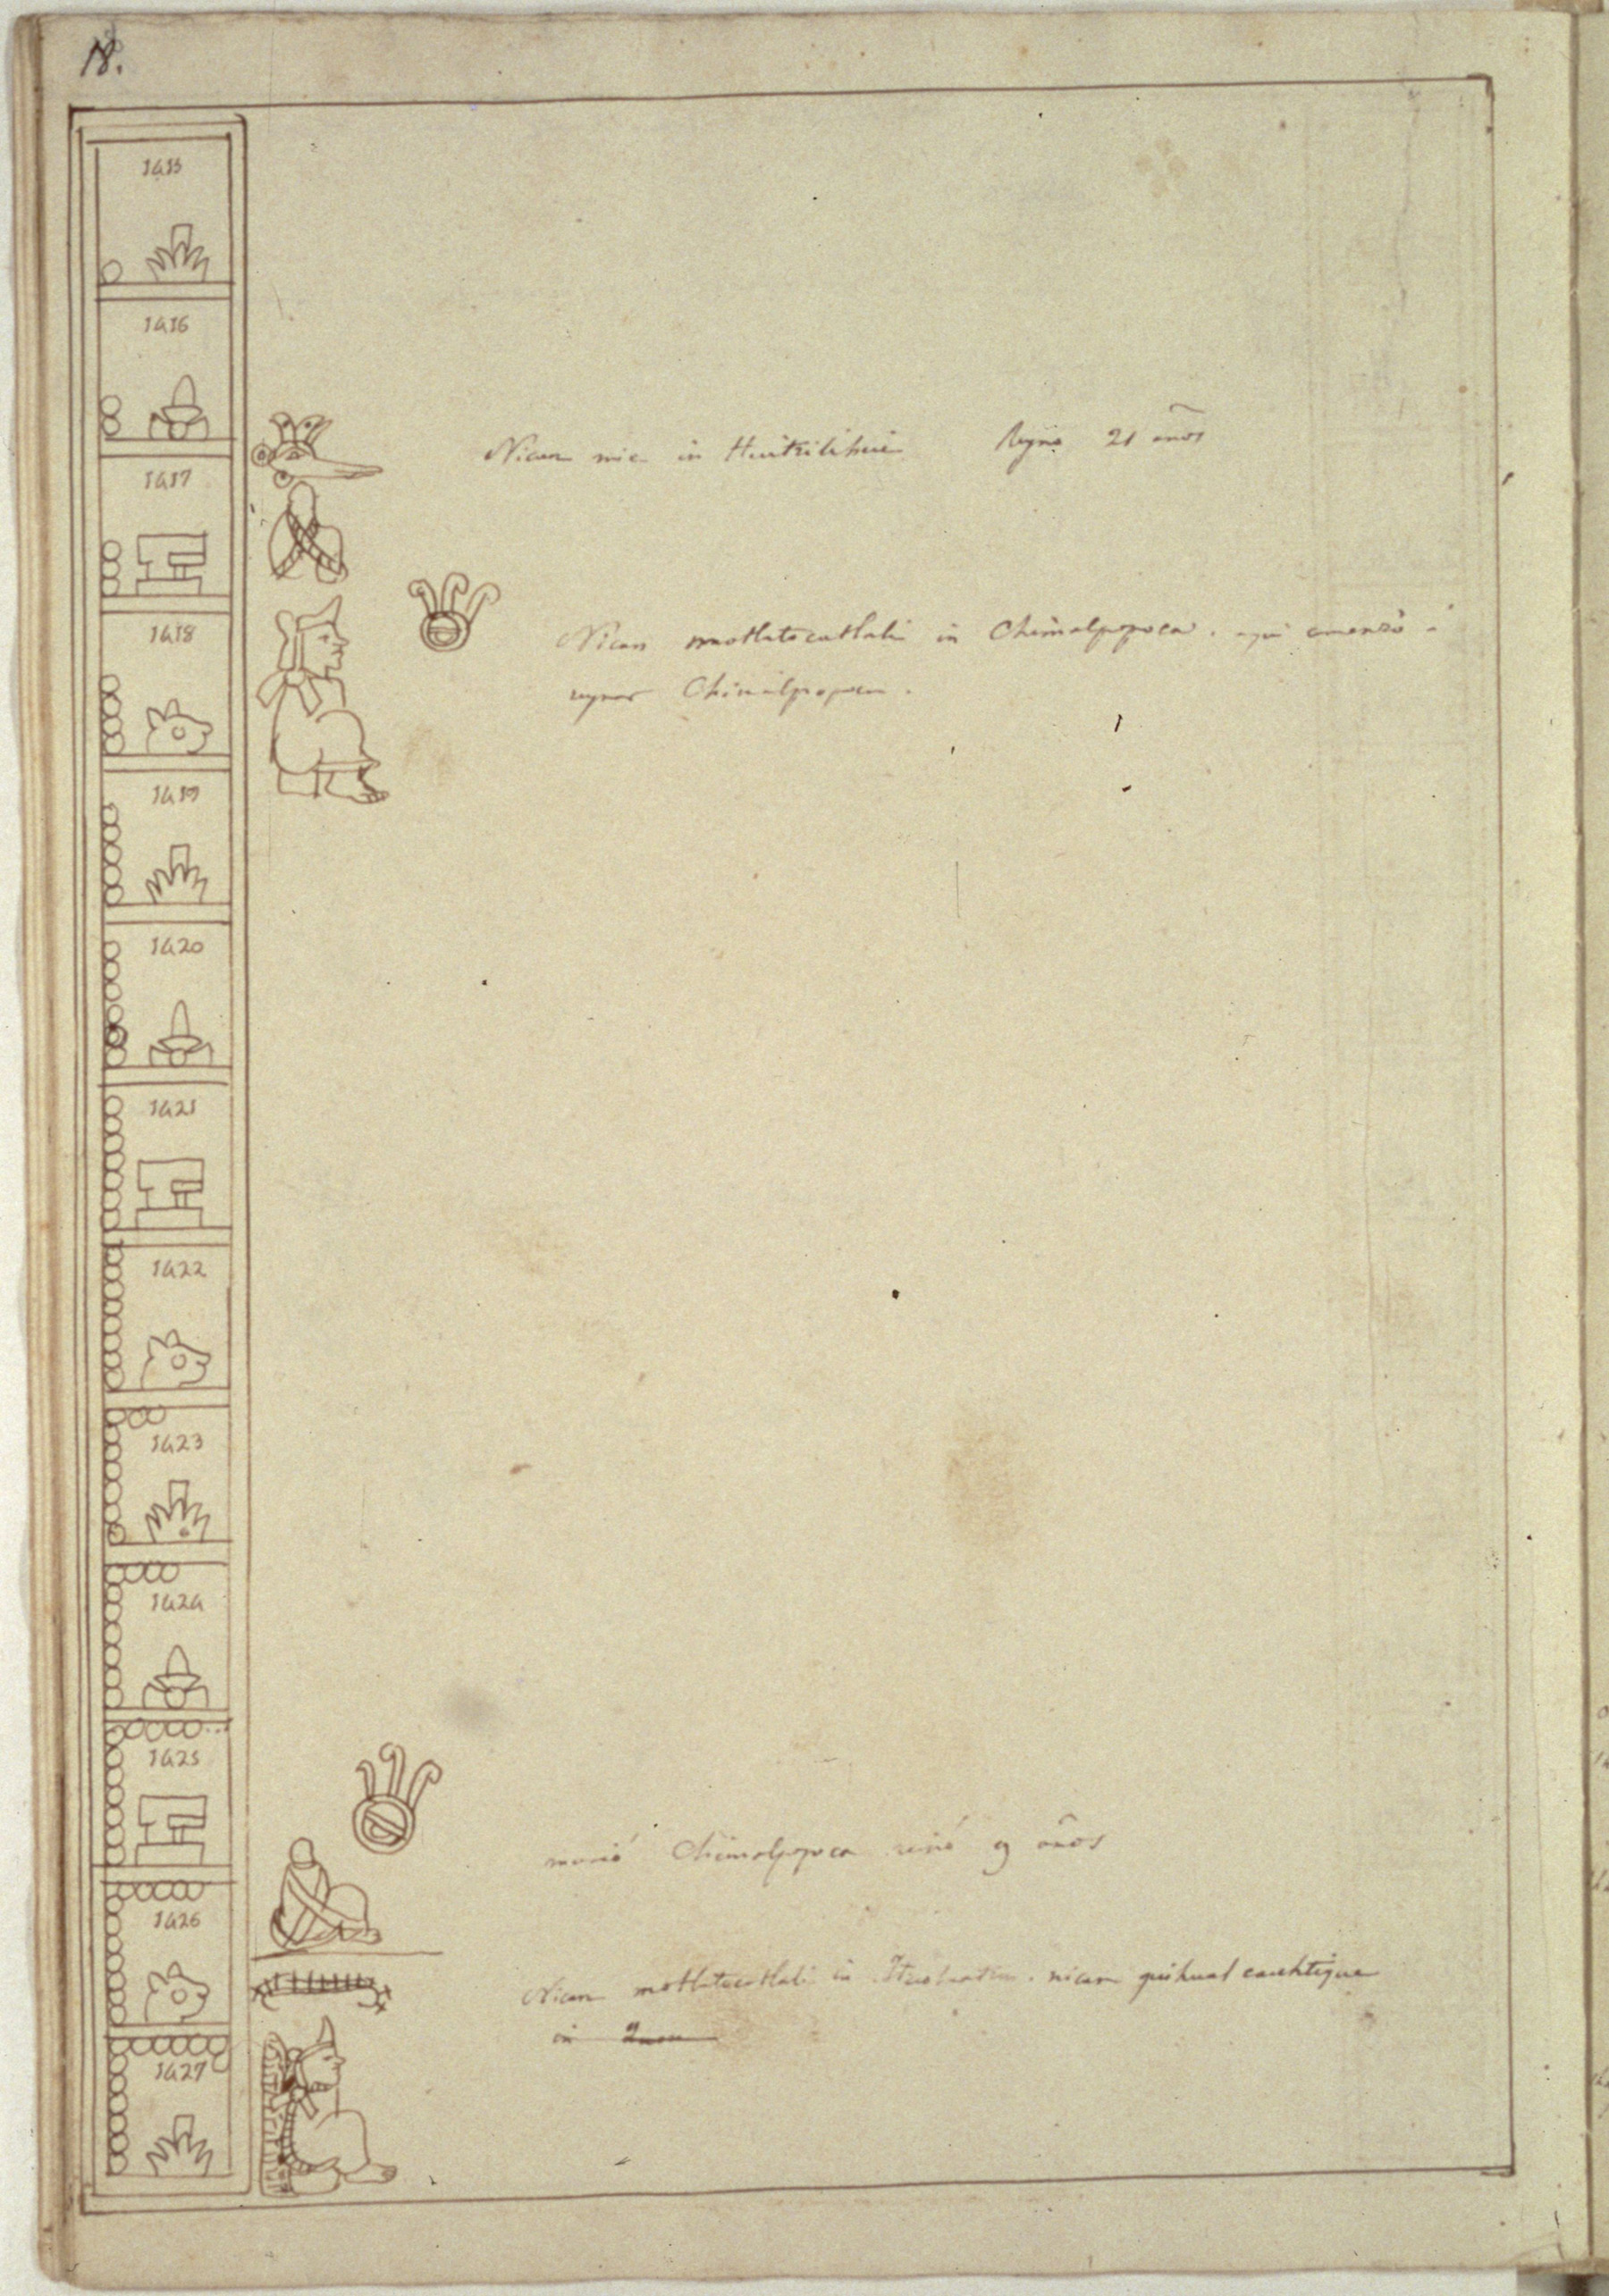 18.
1415
1416
Nican mic in Huitzilihui Reyno 21 años
1417
1418
Nican motlatocatlali in Chimalpopoca. aqui comenzó á
reynar Chimalpopoca.
1419
1420
1421
1422
1423
1424
1425
murió Chimalpopoca reinó 9 años
1426
Nican motlatocatlali in nican quihual cauhtique
in
1427